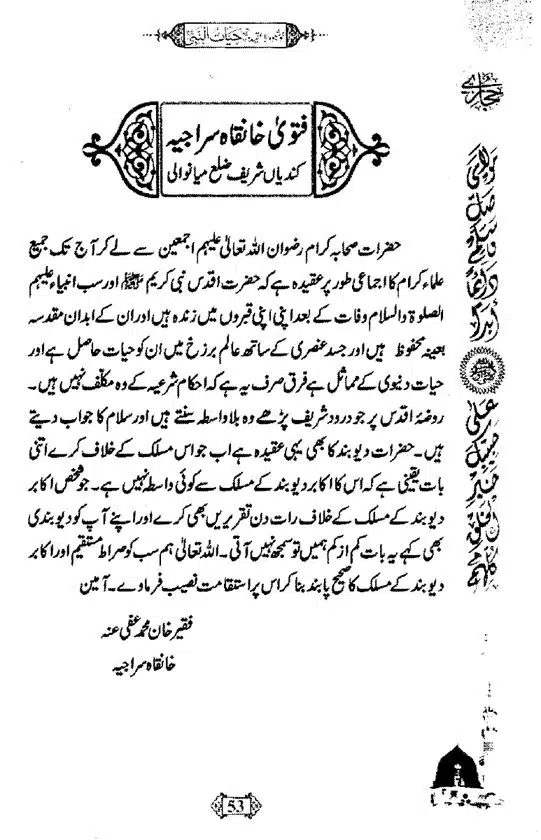 حیات النبی
فتویٰ خانقاہ سراجیہ
کندیاں شریف ضلع میانوالی
حضرات صحابہ کرام رضوان اللہ تعالیٰ علیہم اجمعین سے لے کر آج تک جمیع
علماء کرام کا اجماعی طور پر عقیدہ ہے کہ حضرت اقدس نبی کریم ﷺ اور سب انبیاء علیہم
الصلوۃ والسلام وفات کے بعد اپنی اپنی قبروں میں زندہ ہیں اور ان کے ابدان مقدسہ
بعینہ محفوظ ہیں اور جسد عنصری کے ساتھ عالم برزخ میں ان کو حیات حاصل ہے اور
حیات دنیوی کے مماثل ہے فرق صرف یہ ہے کہ احکام شرعیہ کے وہ مکلف نہیں ہیں۔
روضۂ اقدس پر جو درود شریف پڑھے وہ بلا واسطہ سنتے ہیں اور سلام کا جواب دیتے
ہیں۔ حضرات دیوبند کا بھی یہی عقیدہ ہے اب جو اس مسلک کے خلاف کرے اتنی
بات یقینی ہے کہ اس کا اکابر دیوبند کے مسلک سے کوئی واسطہ نہیں ہے۔ جو شخص اکابر
دیوبند کے مسلک کے خلاف رات دن تقریریں بھی کرے اور اپنے آپ کو دیوبندی
بھی کہے یہ بات کم از کم ہمیں تو سمجھ نہیں آتی۔ اللہ تعالیٰ ہم سب کو صراط مستقیم اور اکابر
دیوبند کے مسلک کا صحیح پابند بنا کر اس پر استقامت نصیب فرماوے۔ آمین
فقیر خان محمد عفی عنہ
خانقاہ سراجیہ
مولای صل وسلم دائما ابدا
علی حبیبک خیر الخلق کلھم
53